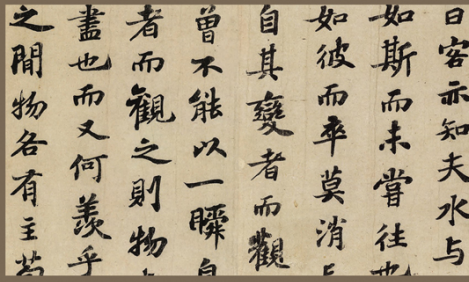 曰客亦知夫水与
如斯而未嘗往也
如彼而卒莫消
自其變者而觀
曾不能以一瞬
者而觀之則物
盡也而又何羨乎
之間物各有主苟